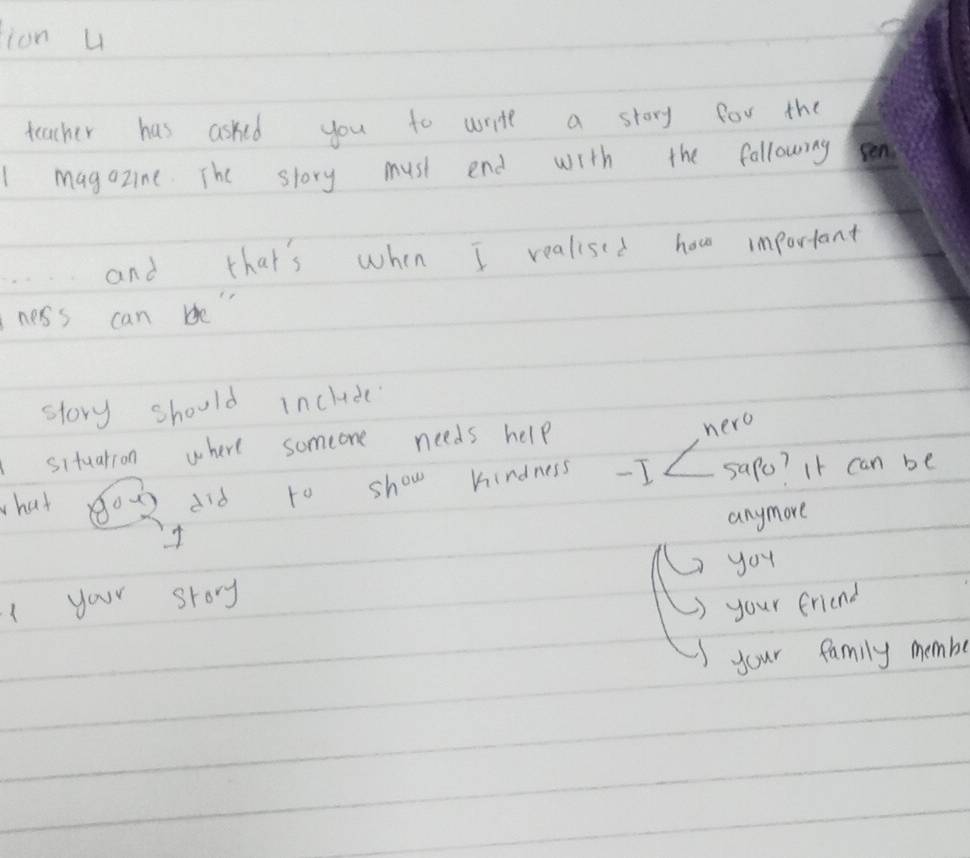 tion 4
teacher has asked you to write a story for the
l magazine. The story must end with the following sen
.... and that's when I realised how important
ness can be"
story should include:
situation where someone needs help
what you did to show kindness - I < hero
sapo? it can be
I
anymore
your story
you
your friend
your family membe